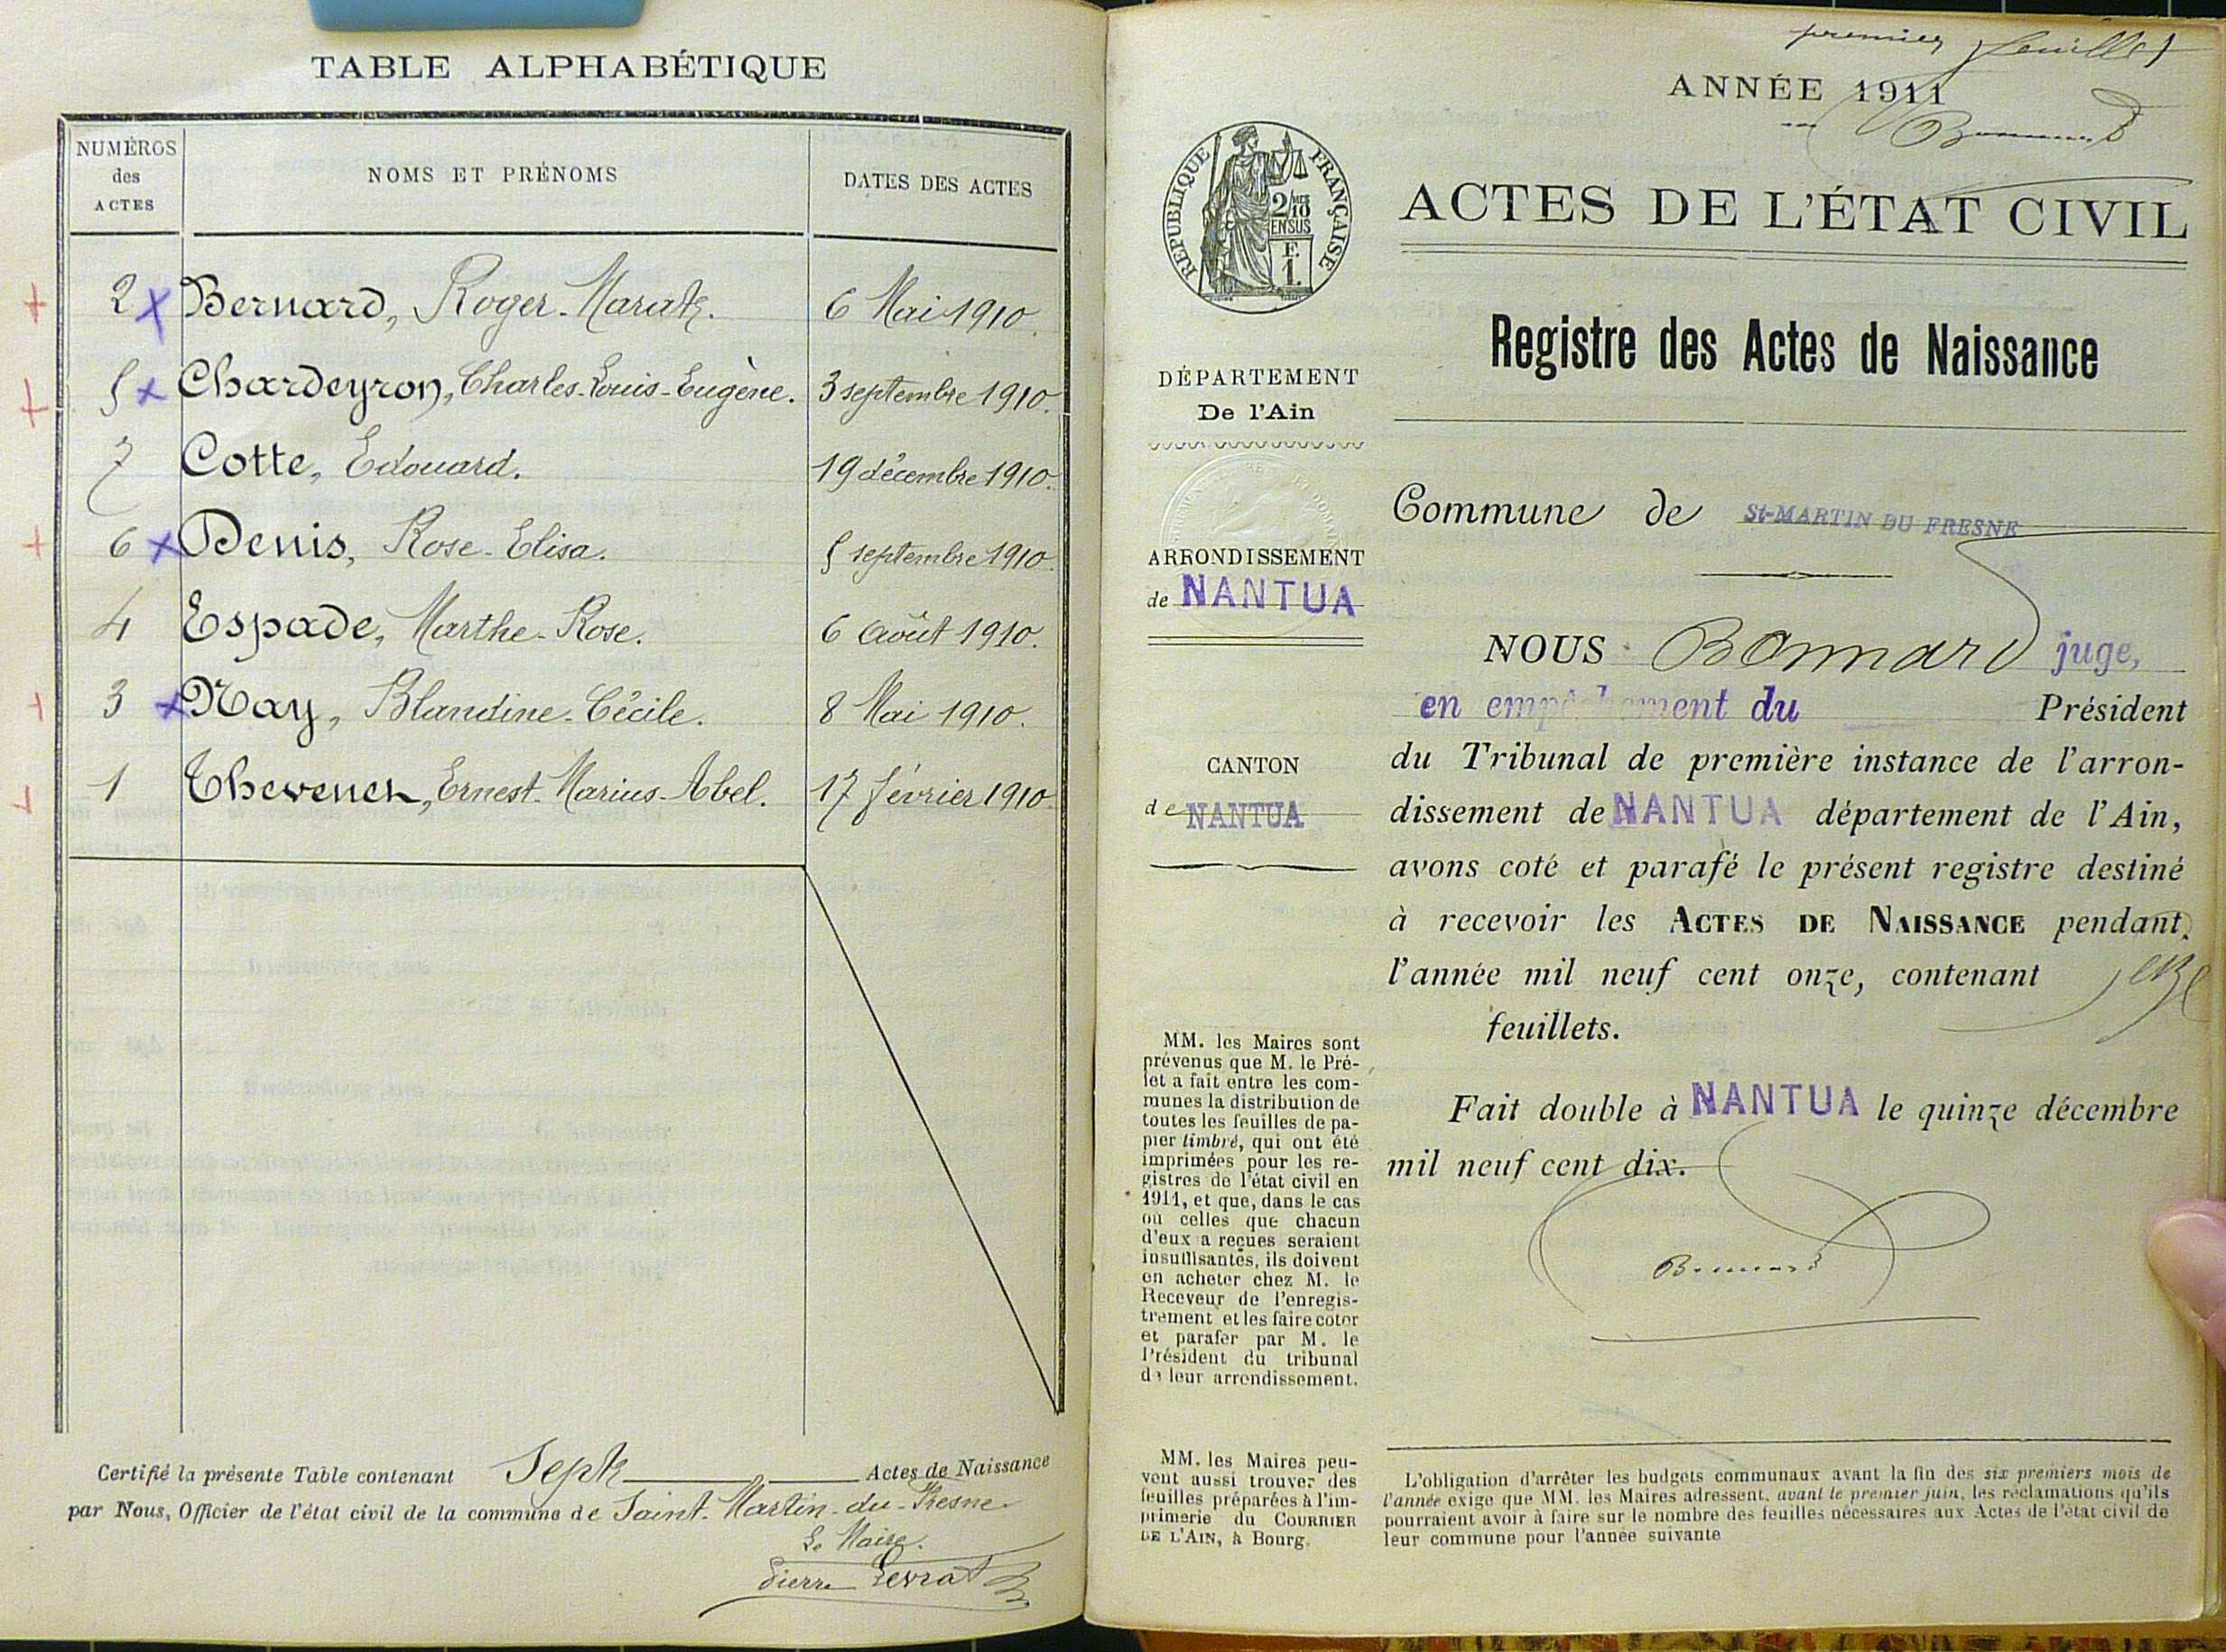 TABLE ALPHABÉTIQUE
NUMÉROS
des
ACTES
NOMS ET PRÉNOMS
DATES DES ACTES
2 Bernard, Roger-Marat. 6 Mai 1910.
5 Chardeyron, Charles-Louis-Eugène. 3 septembre 1910.
7 Cotte, Edouard. 19 décembre 1910.
6 Denis, Rose-Elisa. 5 septembre 1910.
4 Espade, Marthe-Rose. 6 Août 1910.
3 Nay, Blandine-Cécile. 8 Mai 1910.
1 Thevenet, Ernest-Marius-Abel. 17 février 1910.
Certifié la présente Table contenant Sept Actes de Naissance
par Nous, Officier de l'état civil de la commune de Saint-Martin-du-Fresne.
Le Maire.
Pierre
premier feuillet
ANNÉE 1911
Bonnard
RÉPUBLIQUE FRANÇAISE
2/10
EN SUS
F.
1.
ACTES DE L'ÉTAT CIVIL
Registre des Actes de Naissance
DÉPARTEMENT
De l'Ain
ARRONDISSEMENT
de NANTUA
CANTON
de NANTUA
Commune de St-MARTIN DU FRESNE
NOUS Bonnard juge,
en empêchement du Président
du Tribunal de première instance de l'arron-
dissement de NANTUA département de l'Ain,
avons coté et parafé le présent registre destiné
à recevoir les ACTES DE NAISSANCE pendant
l'année mil neuf cent onze, contenant seize
feuillets.
Fait double à NANTUA le quinze décembre
mil neuf cent dix.
Bonnard
MM. les Maires sont
prévenus que M. le Pré-
fet a fait entre les com-
munes la distribution de
toutes les feuilles de pa-
pier timbré, qui ont été
imprimées pour les re-
gistres de l'état civil en
1911, et que, dans le cas
où celles que chacun
d'eux a reçues seraient
insuffisantes, ils doivent
en acheter chez M. le
Receveur de l'enregis-
trement et les faire coter
et parafer par M. le
Président du tribunal
de leur arrondissement.
MM. les Maires peu-
vent aussi trouver des
feuilles préparées à l'im-
primerie du COURRIER
DE L'AIN, à Bourg.
L'obligation d'arrêter les budgets communaux avant la fin des six premiers mois de
l'année exige que MM. les Maires adressent, avant le premier juin, les réclamations qu'ils
pourraient avoir à faire sur le nombre des feuilles nécessaires aux Actes de l'état civil de
leur commune pour l'année suivante